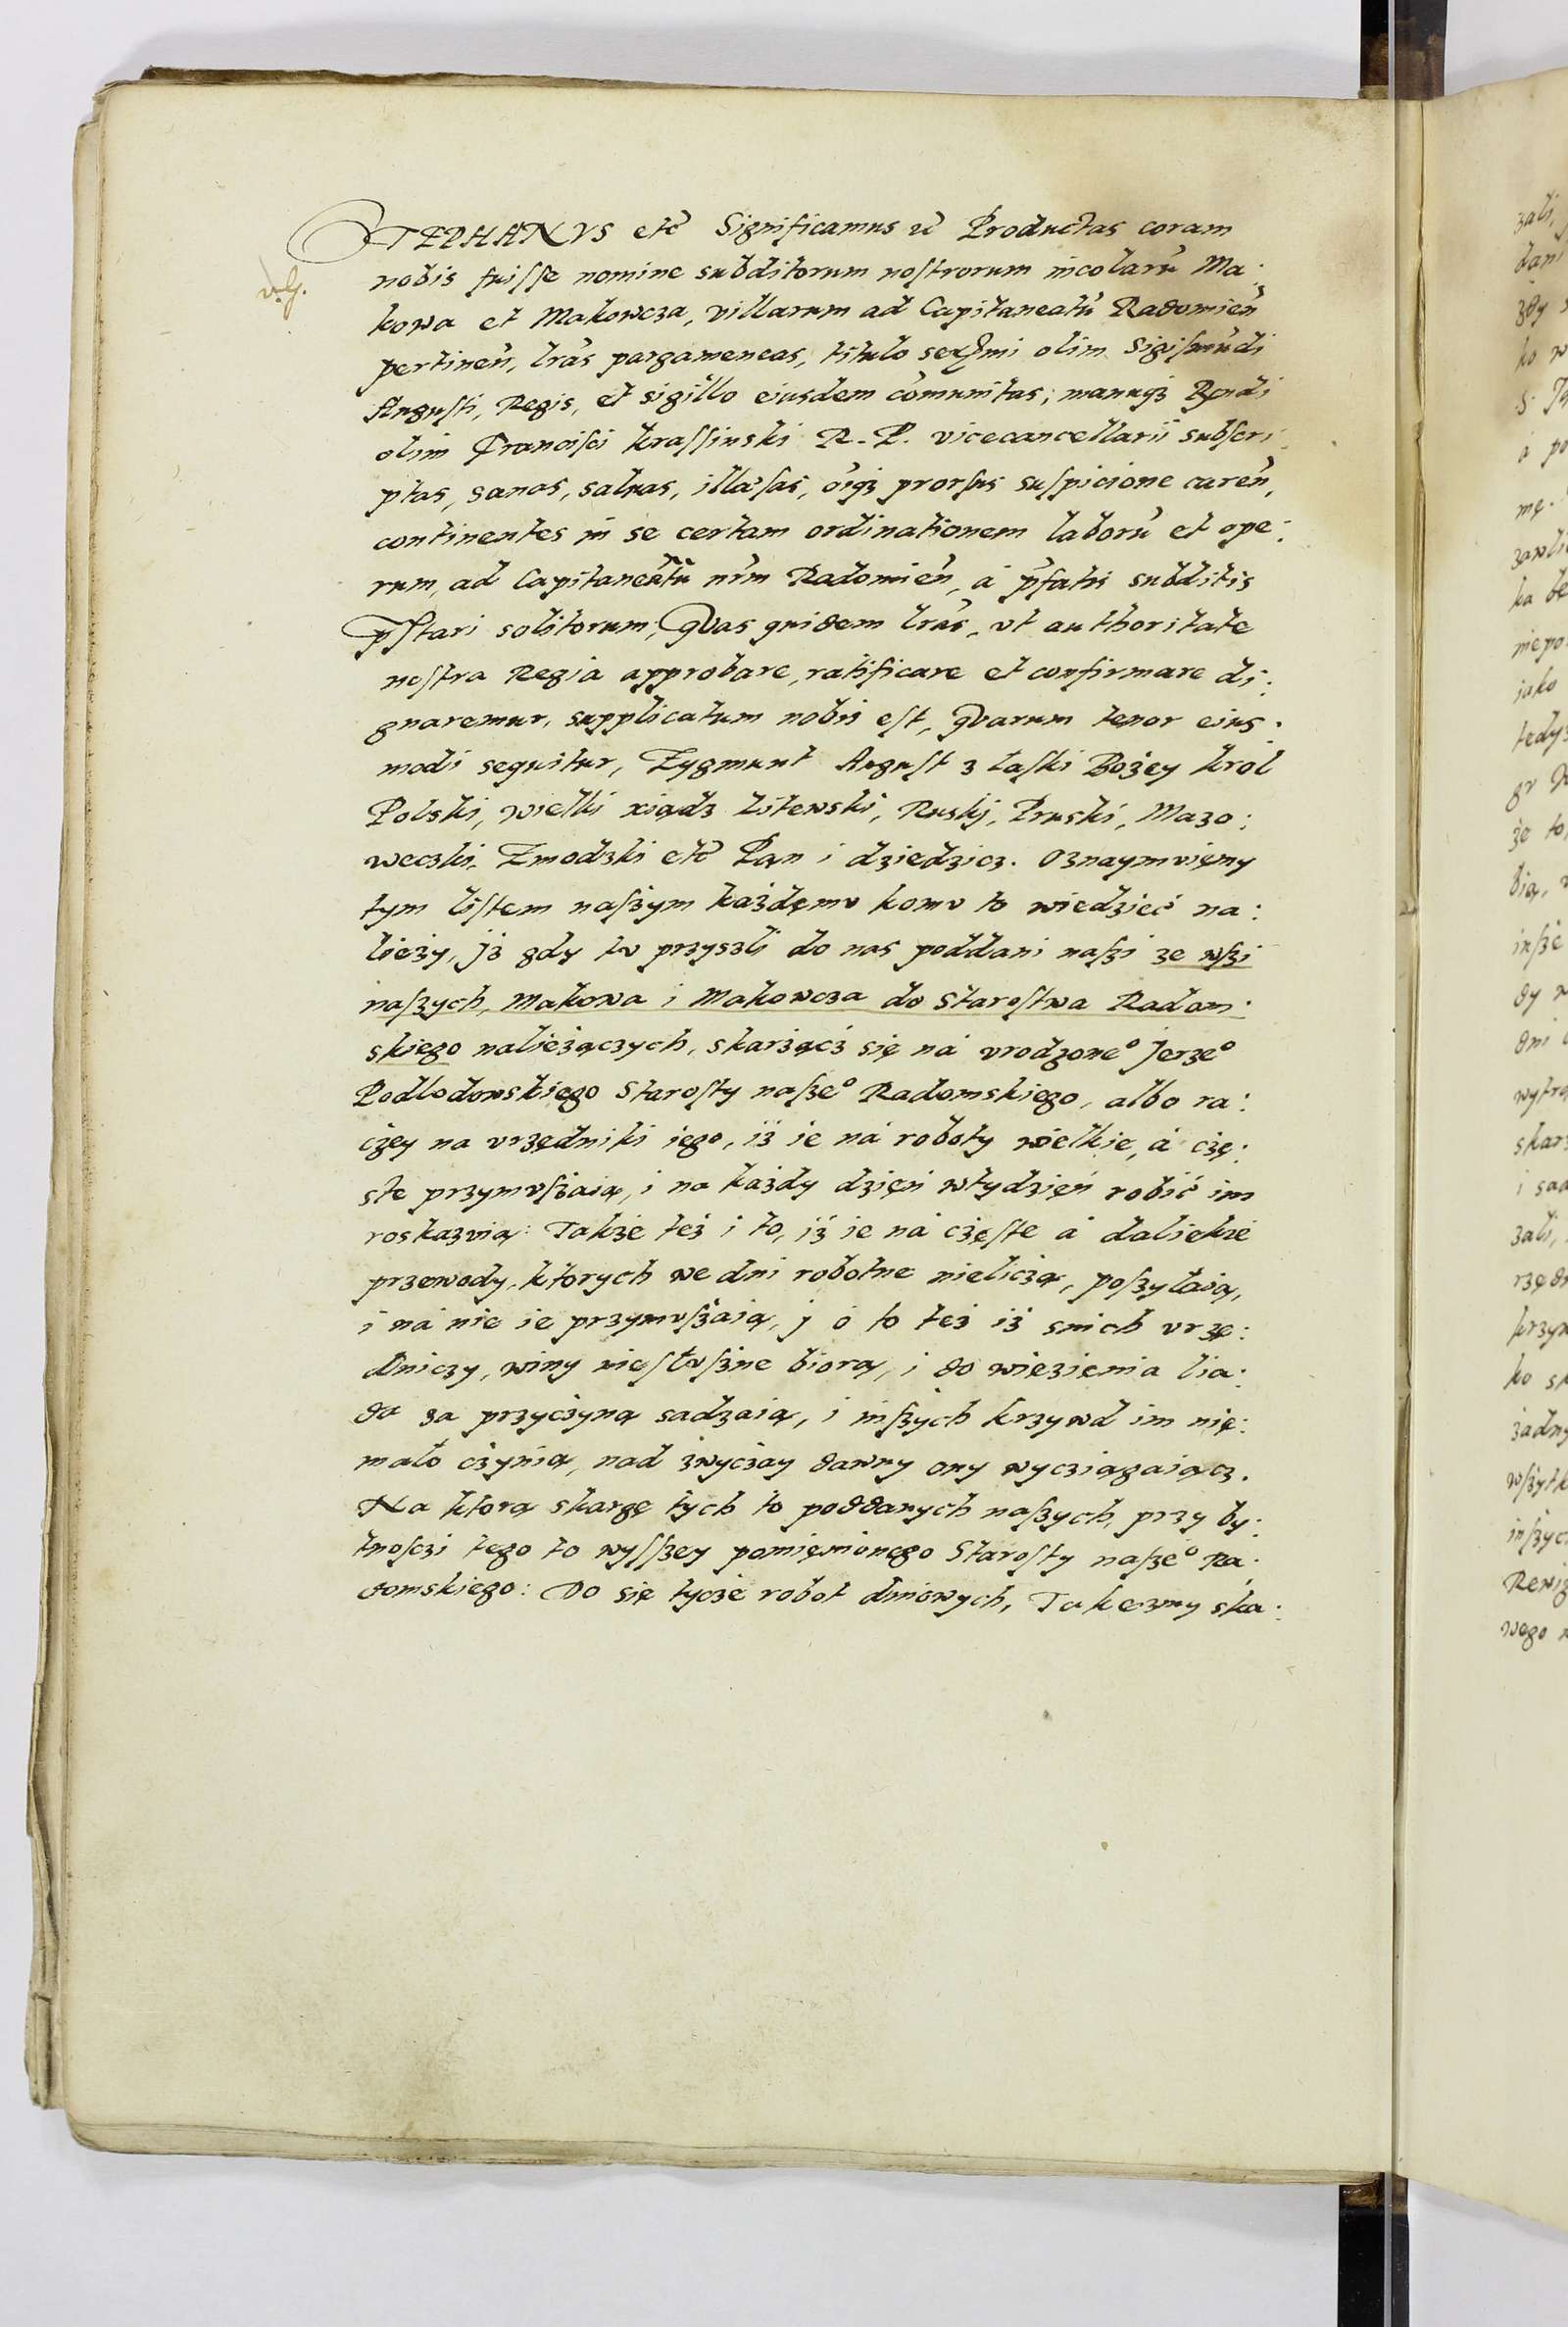 STEPHANVS etc̄ Significamus &c̄ Productas coram
nobis fuiſſe nomine subditorum noſtrorum incolarū Ma:
kowa et Makowcza, villarum ad Capitaneatū Radomien̄
pertinen̄, lr̄as pargameneas, titulo ser̄mi olim Sigiſmūdi
Auguſti, Regis, et sigillo eiusdem com̄unitas; manuq₃ Rn̄di
olim Franciſci kraſſinski R. P. vicecancellarii subſcri:
ptas, sanas, saluas, illæſas, oīq₃ prorſus suſpicione caren̄,
continentes in se certam ordinationem laborū et ope:
rum, ad Capitaneatū nr̄m Radomien̄, à p̄fatis subditis
p̄ſtari solitorum; Quas quidem lr̄as, vt authoritate
noſtra Regia approbare, ratificare et confirmare di:
gnaremur, supplicatum nobis eſt, quarum tenor eius:
modi sequitur, Zygmunt Auguſt z łaſki Bożey krol
Polski, wielki xiądz Litewski, Ruskj, Pruski, Mazo:
weczki, Zmodzki etc̄ Pan i dziedzicz. Oznaymvięmy
tym liſtem naſżym każdęmv komv to wiedzieć na:
lieży, jż gdy tv przyszli do nas poddani naſzi ze wſzi
naſzych, Makowa i Makowcza do Staroſtwa Radom:
skiego nalieżączych, skarżącż się nà vrodzone° Jerze°
Podlodowskiego Staroſty naſze° Radomskiego, albo ra:
czey na vrzędniki iego, iż ie nà roboty wielkie, à czę:
ste przymvſzaią, i na każdy dzięń wtydzięń robić im
roskazvią: Także też i to, iż ie nà częſte à daliekie
przewody, ktorych we dni robotne nieliczą, poſzyłaią,
i nà nie ie przymvſzaią, j o to też iż snich vrzę:
dniczy, winy nieſłvſzne biorą, i do więzięnia lia:
da za przyczyną sadzaią, i inſzych krzywd im nię:
mało czynią, nad zwyczay dawny ony wycziągaiącz.
Na ktorą skargę tych to poddanych naſzych, przy by:
tnoſczi tego to wyſſzey pomięnionego Staroſty naſze° Ra:
domskiego: Do się tycze robot dniowych, Takezmy ska: